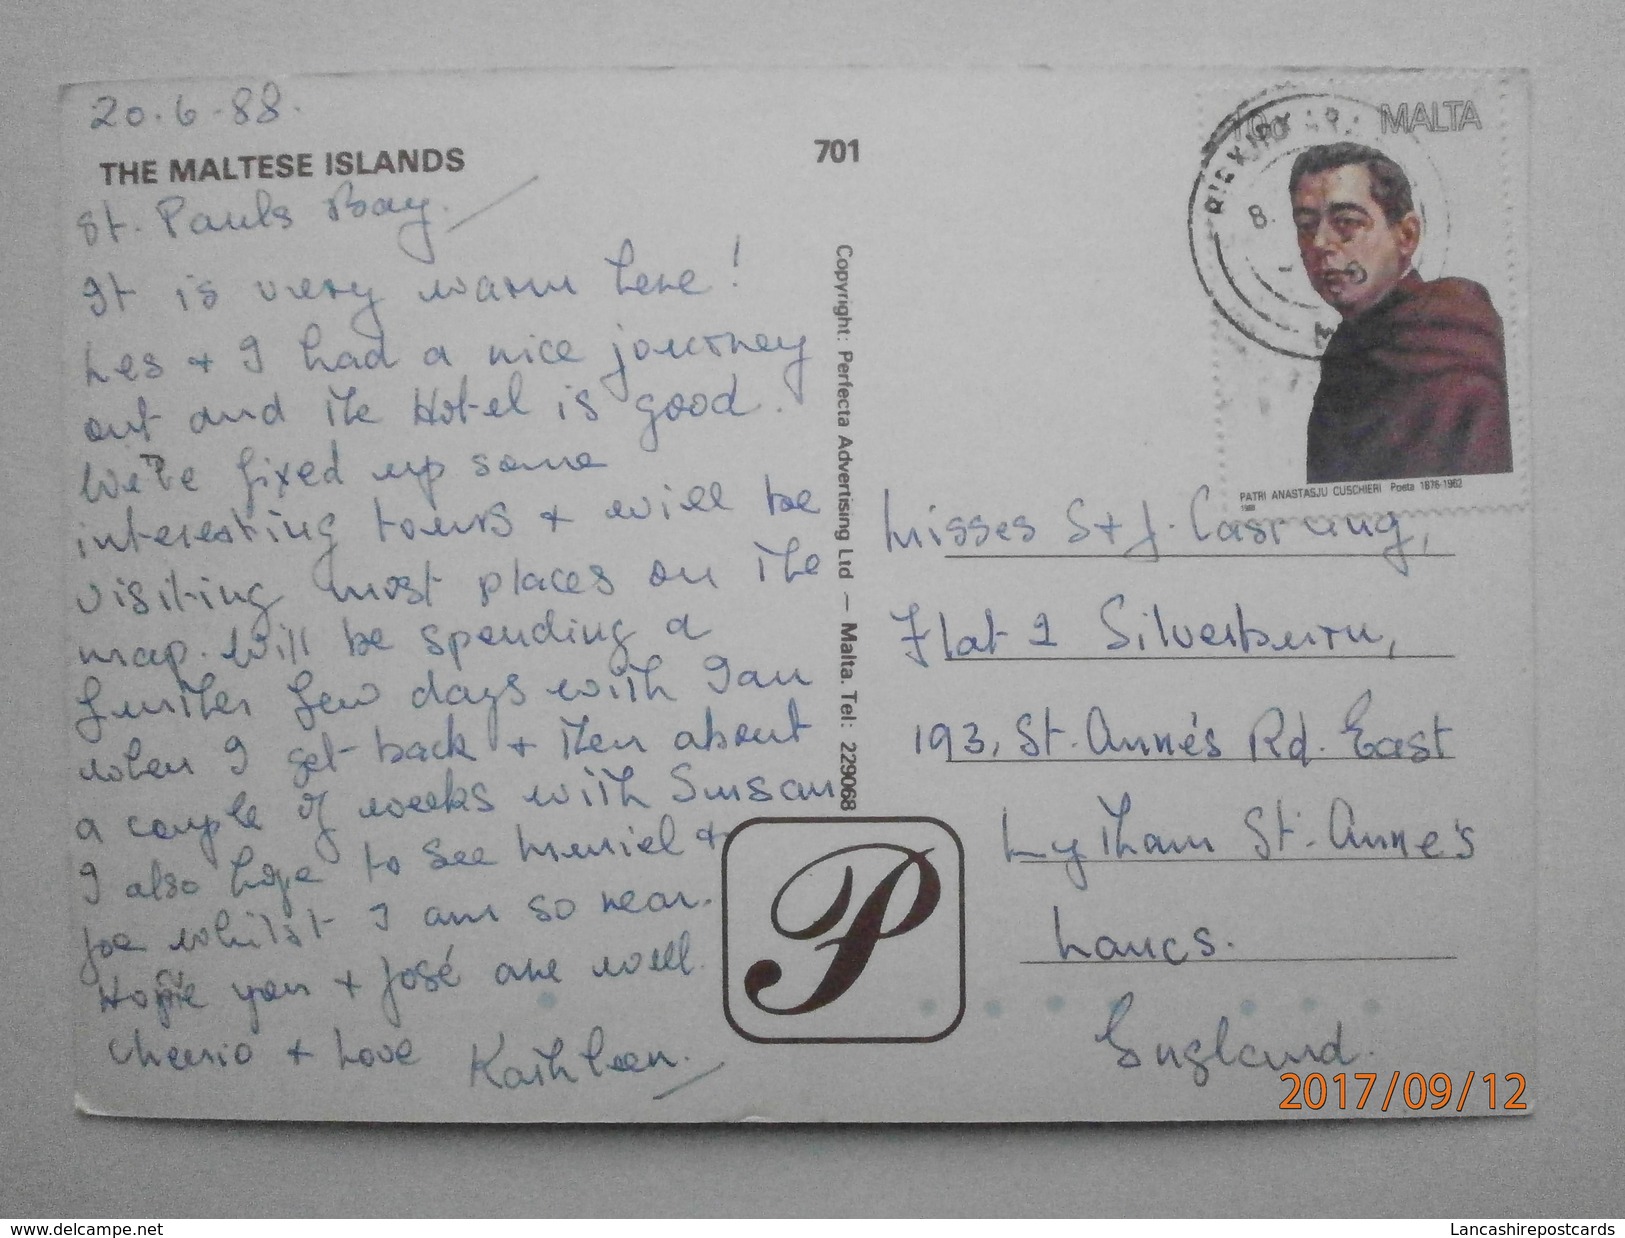 20.6.88.
THE MALTESE ISLANDS
St. Pauls Bay.
It is very warm here!
Les + I had a nice journey
out and the Hotel is good.
We've fixed up some
interesting tours + will be
visiting most places on the
map. Will be spending a
further few days with Ian
when I get back + then about
a couple of weeks with Susan
I also hope to see Muriel +
Joe whilst I am so near.
Hope you + José are well.
Cheerio + Love Kathleen.
701
Copyright: Perfecta Advertising Ltd — Malta. Tel: 229068
P
MALTA
8.
PATRI ANASTASJU CUSCHIERI Poeta 1876-1962
Misses S + J.
Flat 1 Silverburn,
193, St. Anne's Rd. East
Lytham St. Anne's
Lancs.
England.
2017/09/12
www.delcampe.net
Lancashirepostcards